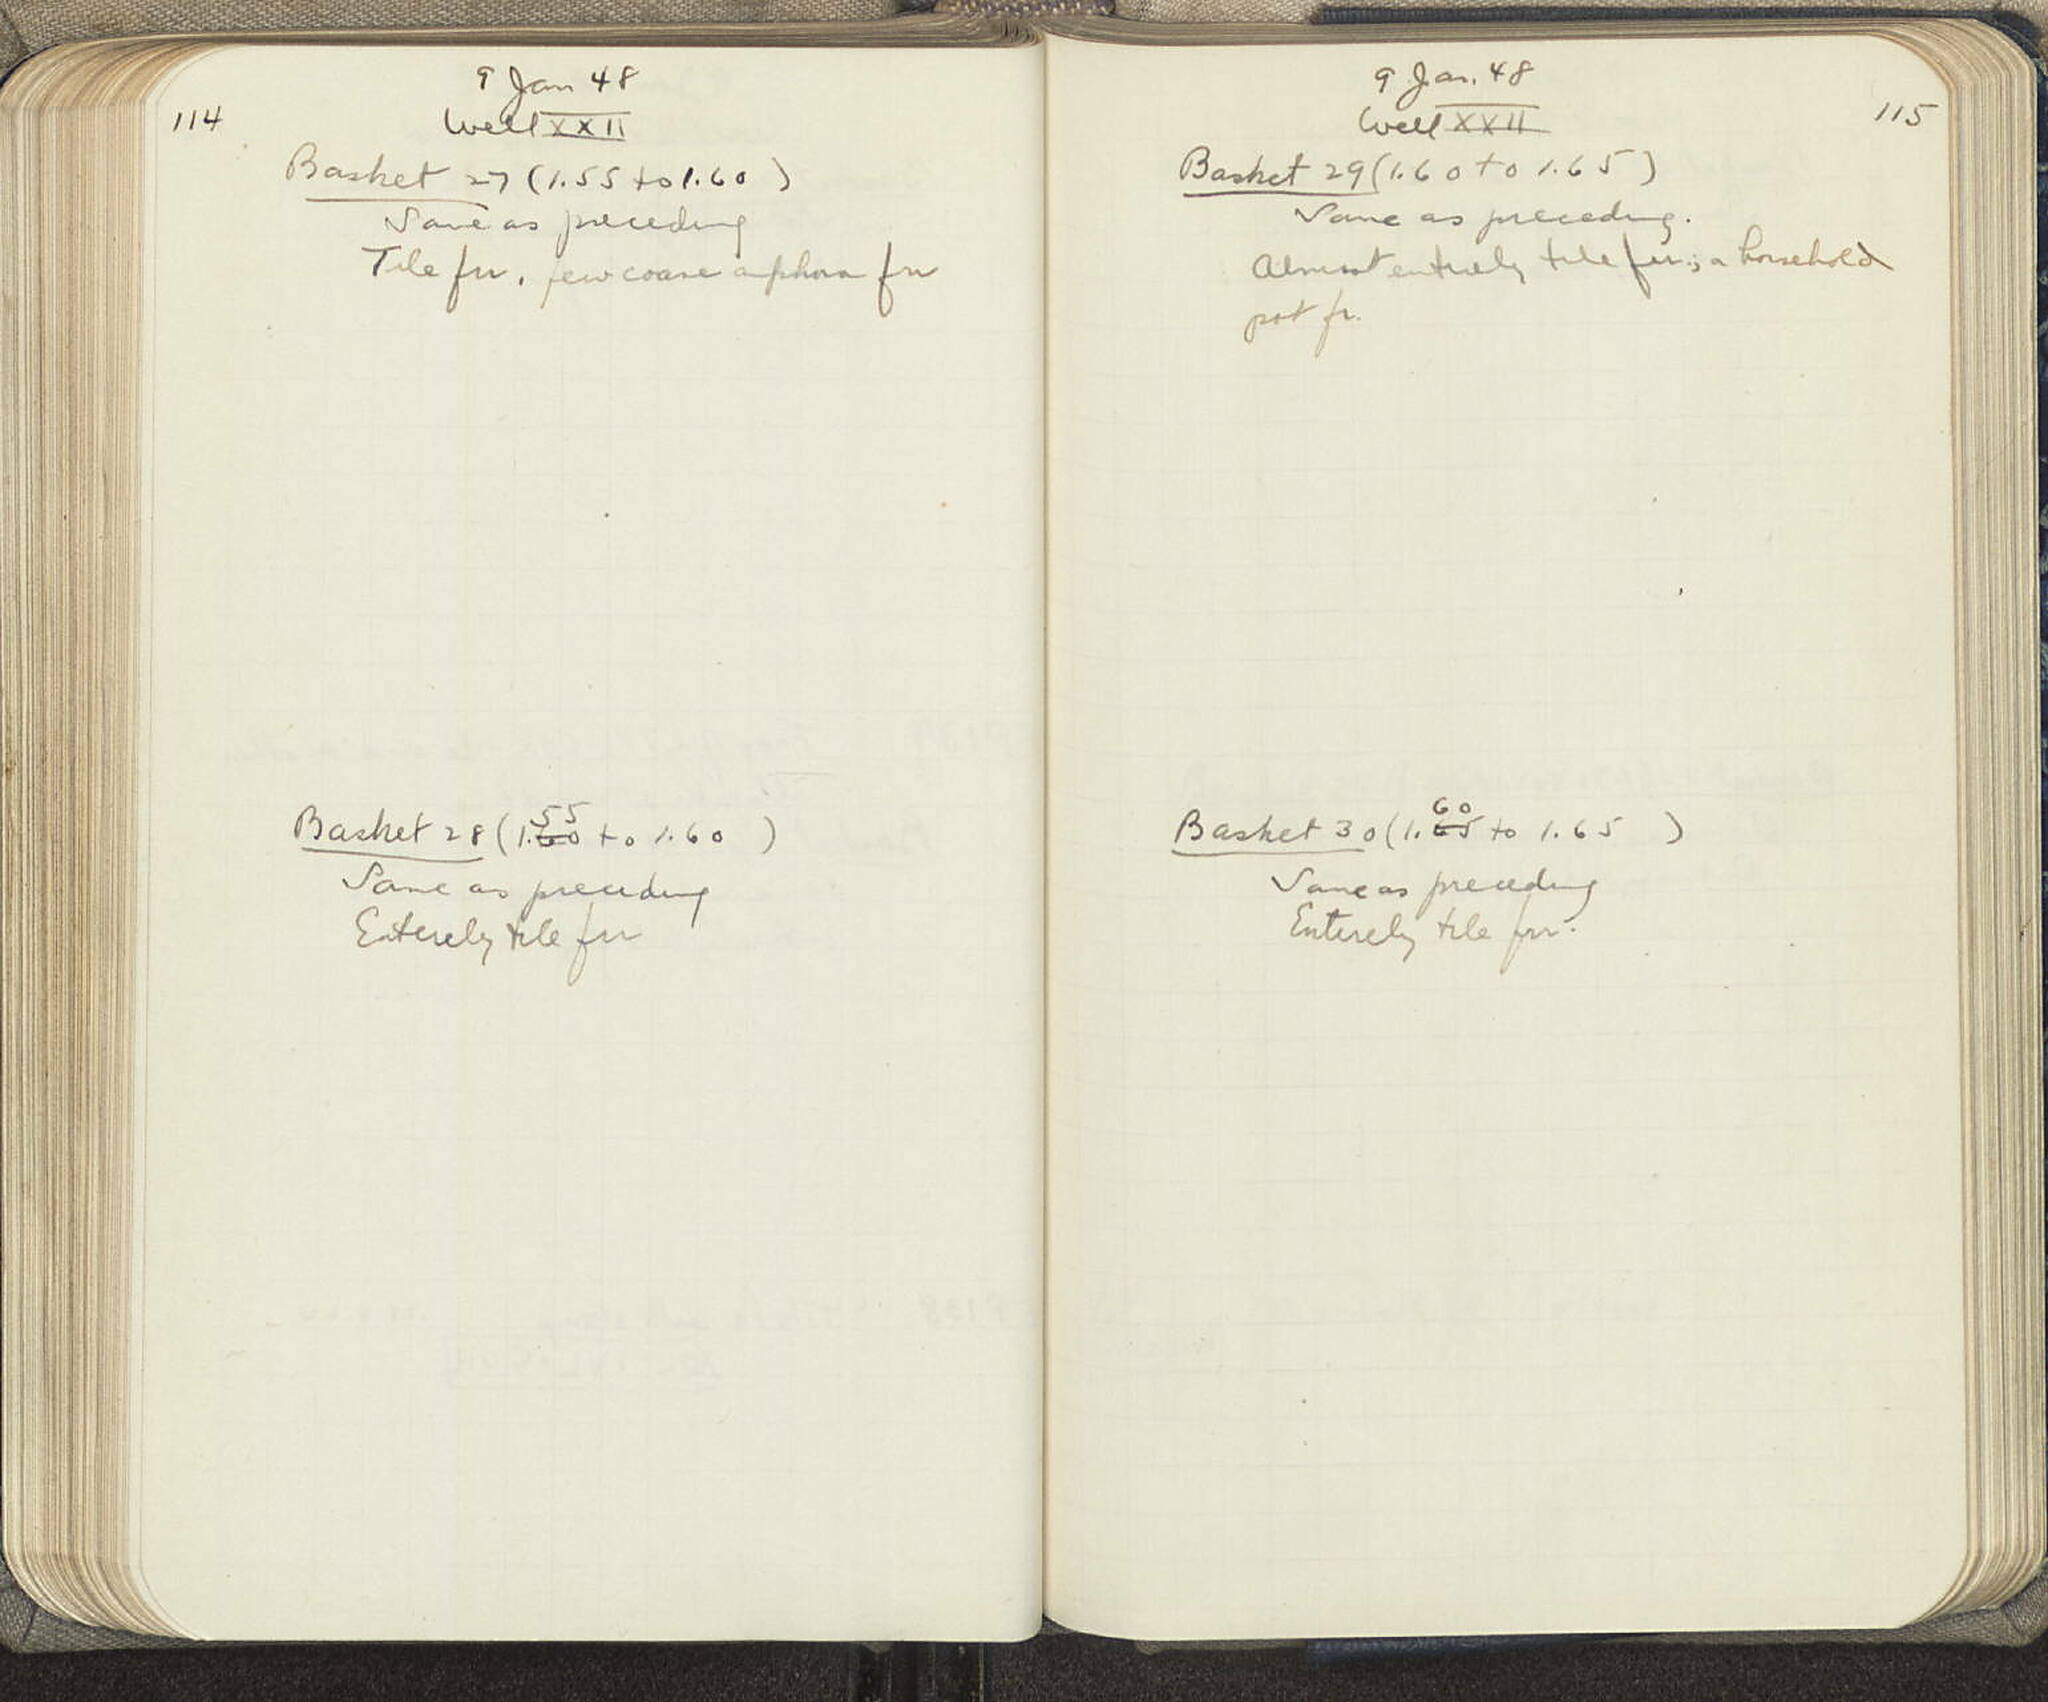 114
9 Jan 48
Well XXII
Basket 27 (1.55 to 1.60)
Same as preceding
Tile frr. few coarse amphora frr
Basket 28 (1.60 55 to 1.60)
Same as preceding
Entirely tile frr
115
9 Jan. 48
Well XXII
Basket 29 (1.60 to 1.65)
Same as preceding.
Almost entirely tile frr.; a household
pot fr.
Basket 30 (1.65 60 to 1.65)
Same as preceding
Entirely tile frr.